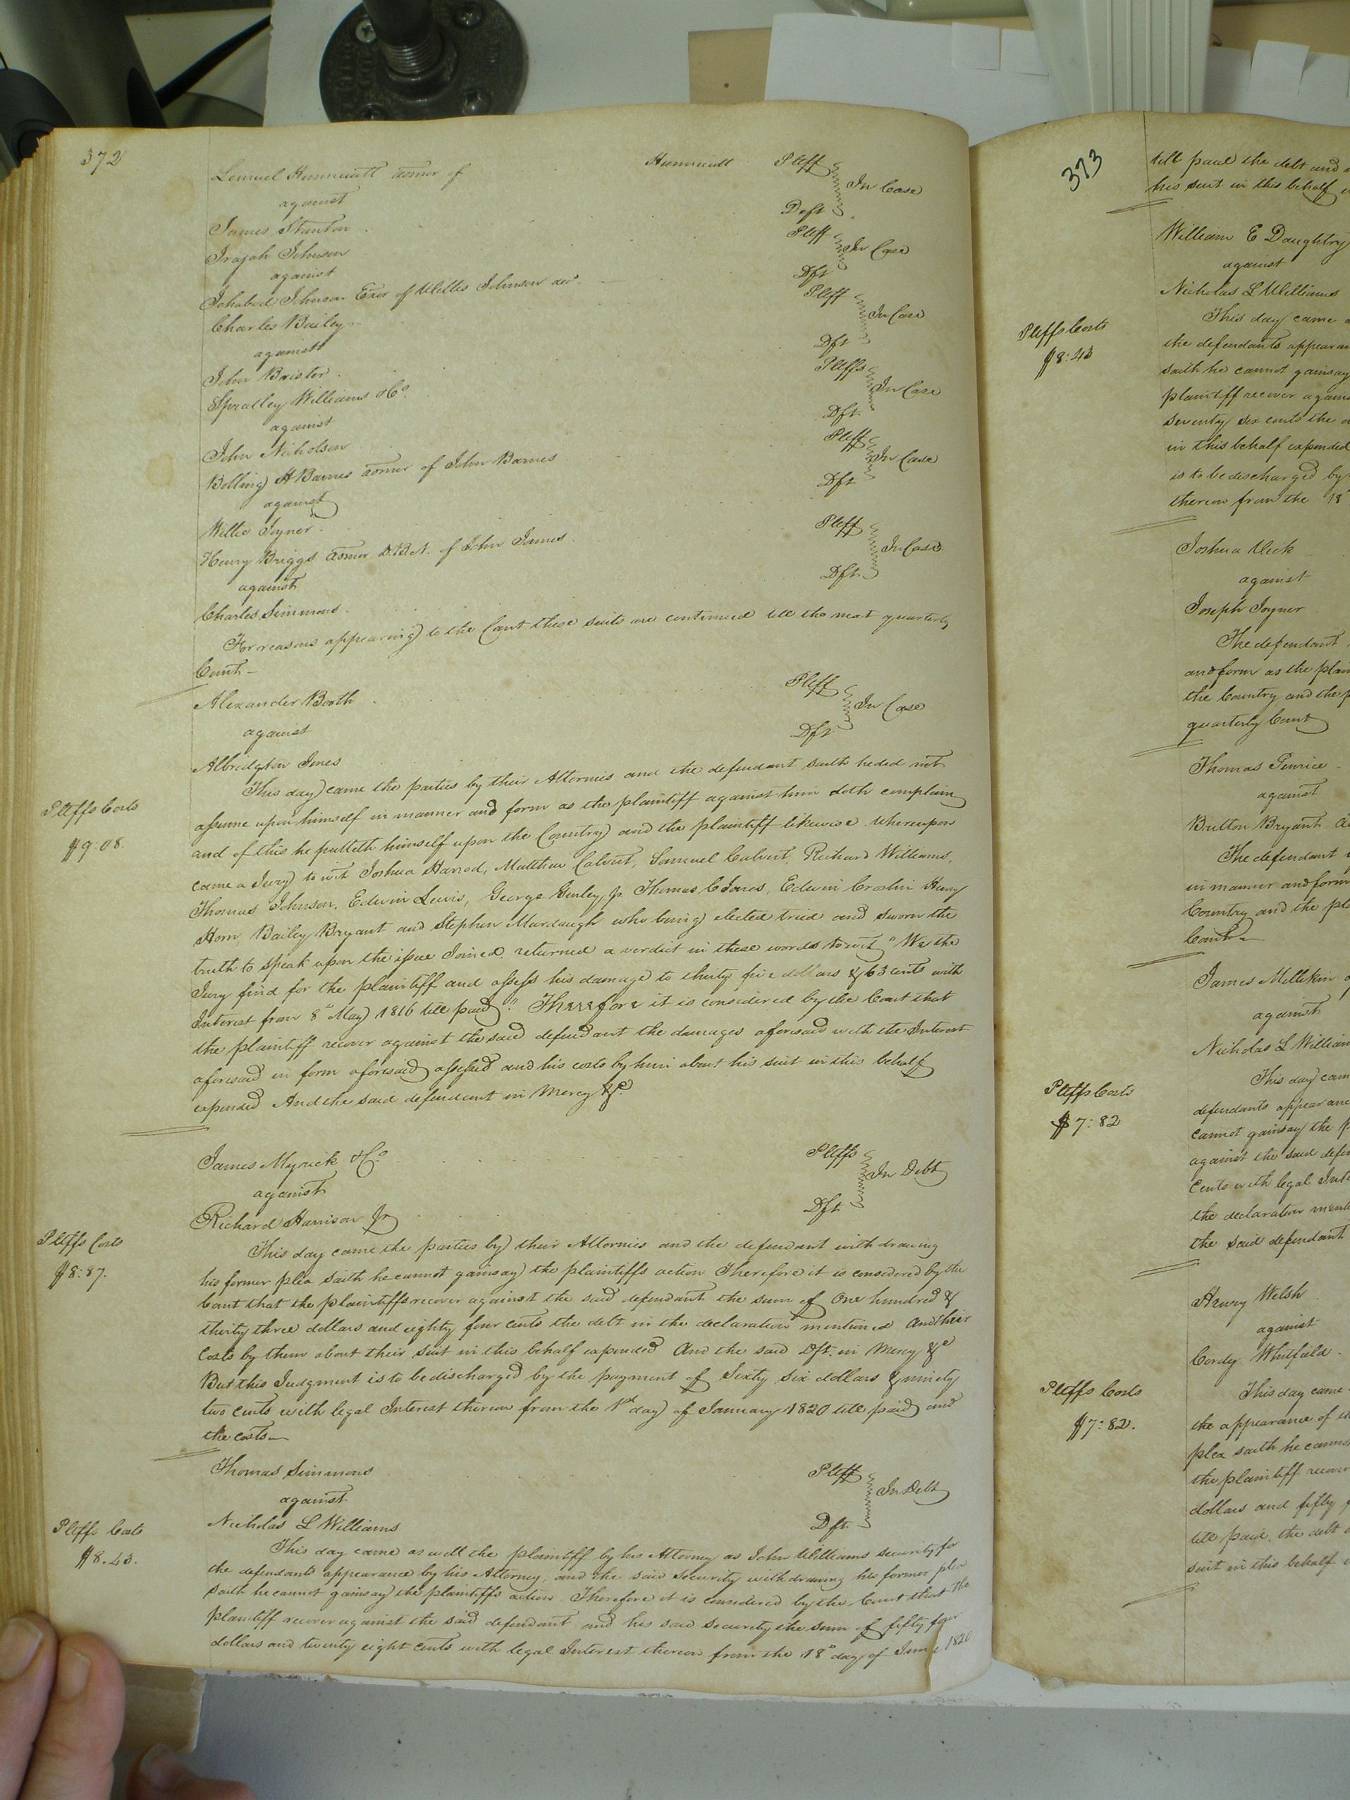 372
Lemuel Hunnicutt admor of Hunnicutt Pltff
against In Case
James Stanton Deft
Irajah Johnson Pltff
against In Case
Ichabod Johnson Exor of Willis Johnson decd. Dft
Charles Bailey Pltff
against In Case
John Brister Dft
Spratley Williams & Co. Pltffs
against In Case
John Nicholson Dft
Bolling H Barnes admor of John Barnes Pltff
against In Case
Willie Joyner Dft
Henry Briggs admor D.B.N. of John James Pltff
against In Case
Charles Simmons Dft
For reasons appearing to the Court these suits are continued till the next quarterly
Court
Alexander Booth Pltff
against In Case
Albridgton Jones Dft
Pltffs Costs
$9.08.
This day came the parties by their Attornies and the defendant saith he did not
assume upon himself in manner and form as the plaintiff against him doth complain
and of this he putteth himself upon the Country and the plaintiff likewise whereupon
came a Jury to wit Joshua Harrod, Matthew Calvert, Samuel Calvert, Richard Williams,
Thomas Johnson, Edwin Lewis, George Gurley Jr Thomas C Jones, Edwin Henry
Horn, Bailey Bryant and Stephen Murdaugh who being elected tried and sworn the
truth to speak upon the issue Joined returned a verdict in these words to wit "We the
Jury find for the plaintiff and assess his damage to thirty five dollars & 63 cents with
Interest from 8th May 1816 till paid" Therefore it is considered by the Court that
the plaintiff recover against the said defendant the damages aforesaid with the Interest
aforesaid in form aforesaid assessed and his costs by him about his suit in this behalf
expended And the said defendant in Mercy &c
James Myrick & Co Pltffs
against In Debt
Richard Harrison Jr Dft
Pltffs Costs
$8:87.
This day came the parties by their Attornies and the defendant withdrawing
his former plea saith he cannot gainsay the plaintiffs action Therefore it is considered by the
Court that the plaintiffs recover against the said defendant the sum of One hundred &
thirty three dollars and eighty four cents the debt in the declaration mentioned And their
Costs by them about their Suit in this behalf expended And the said Dft. in Mercy &c
But this Judgment is to be discharged by the payment of Sixty six dollars & ninety
two cents with legal Interest thereon from the 1st day of January 1820 till paid and
the costs
Thomas Simmons Pltff
against In Debt
Nicholas L Williams Dft.
Pltffs Costs
$8.43.
This day came as well the plaintiff by his Attorney as John Williams security for
the defendants appearance by his Attorney, and the said Security withdrawing his former plea
saith he cannot gainsay the plaintiffs action. Therefore it is considered by the Court that the
plaintiff recover against the said defendant and his said security the sum of fifty four
dollars and twenty eight cents with legal Interest thereon from the 18th day of June 1820
373
till paid the debt and
his suit in this behalf
William E Daughtry
against
Nicholas L Williams
Pltffs Costs
$8:43
This day came
the defendants appearan
saith he cannot gainsay
plaintiff recover again
seventy six cents the
in this behalf expended
is to be discharged by
thereon from the 18
Joshua Vick
against
Joseph Joyner
The defendant
and form as the plain
the Country and the p
quarterly Court
Thomas Penrice
against
Britton Bryant
The defendant
in manner and form
Country and the pl
Court
James Millikin
against
Nicholas L William
Pltffs Costs
$7:82
This day cam
defendants appearanc
cannot gainsay the p
against the said defen
Cents with legal Int
the declaration menti
the said defendant
Henry Welsh
against
Cordy Whitfield
Pltffs Costs
$7:82.
This day came
the appearance of t
plea saith he canno
the plaintiff recover
dollars and fifty
till paid. the debt
suit in this behalf